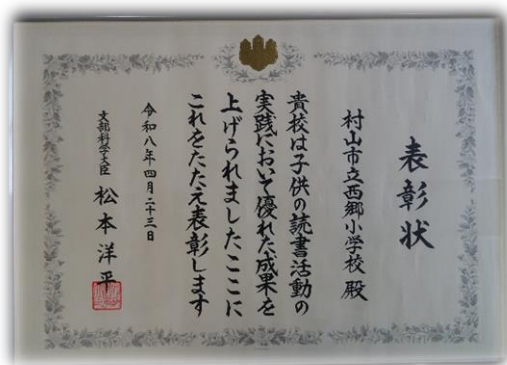 表彰状
村山市立西郷小学校 殿
貴校は子供の読書活動の
実践において優れた成果を
上げられましたここに
これをたたえ表彰します
令和八年四月二十三日
文部科学大臣 松本洋平